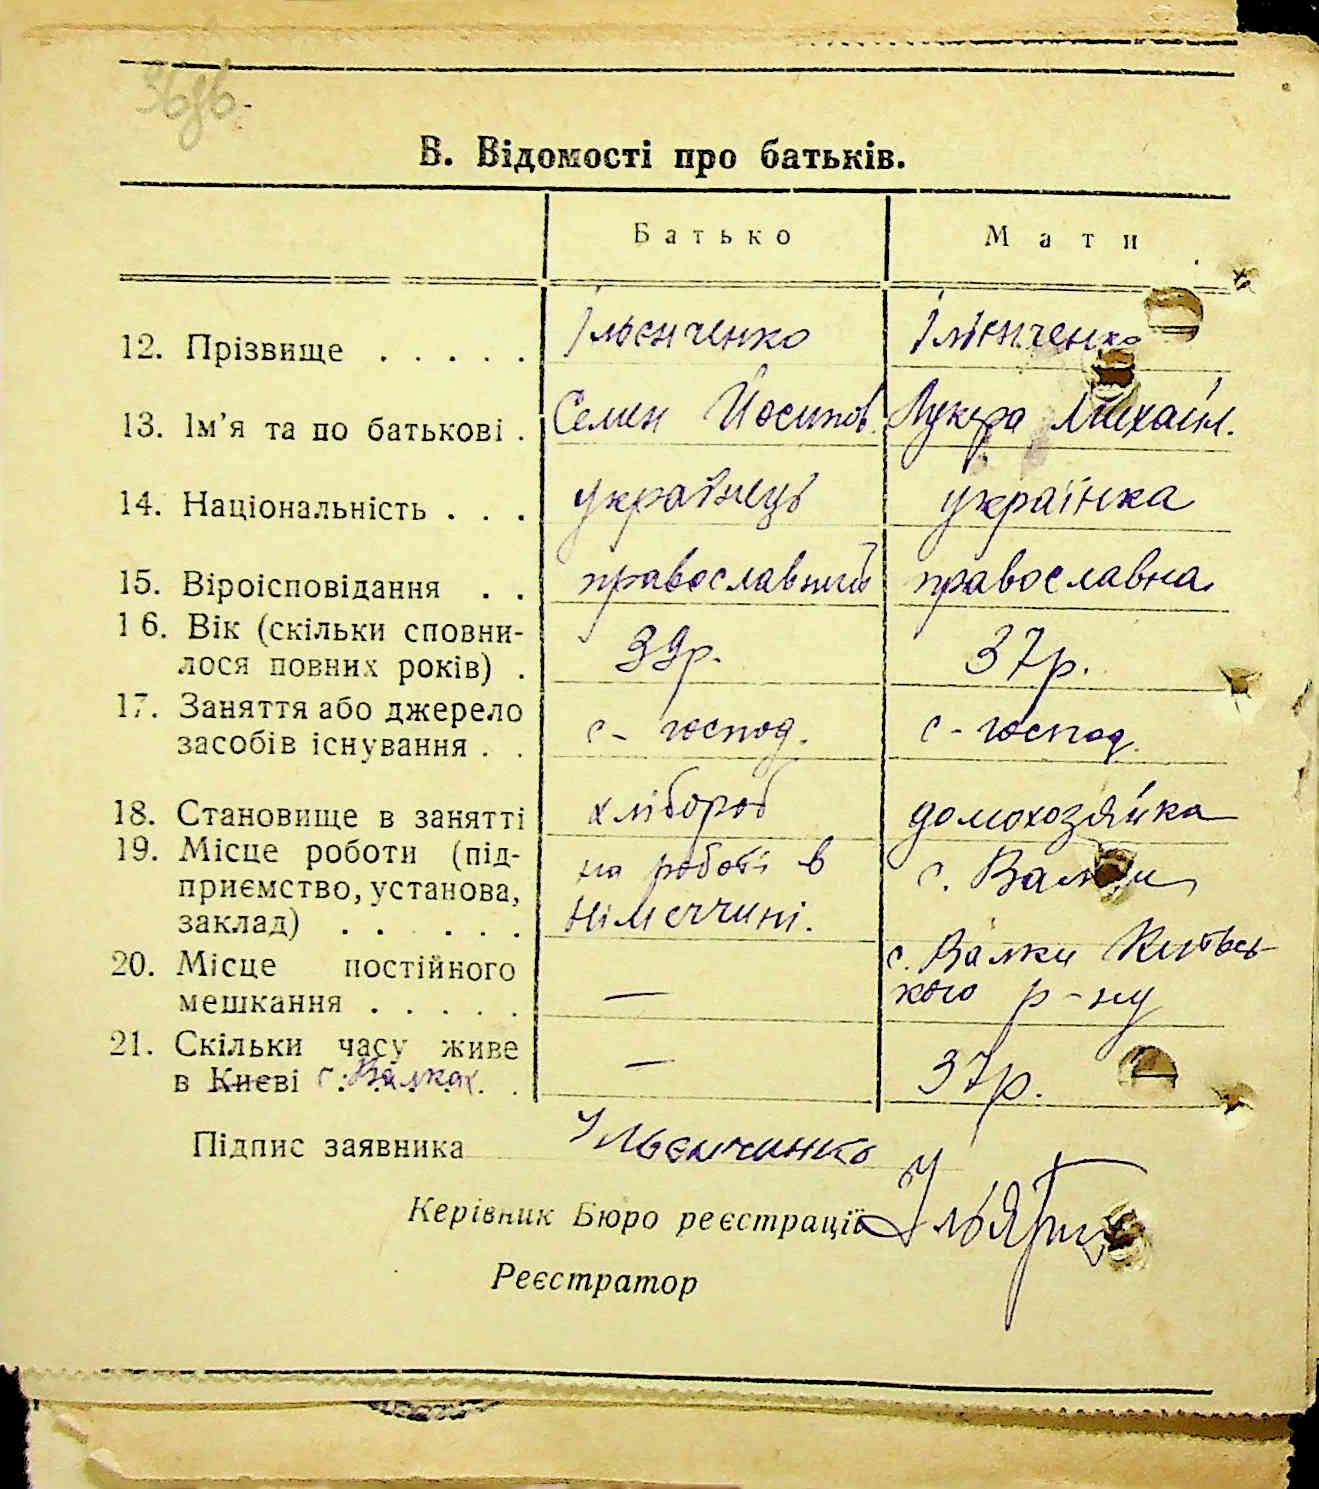 В. Відомості про батьків.
Батько Мати
12. Прізвище . . . . . Ільєнченко Ільєнченко
13. Ім'я та по батькові . Семен Йосипов. Лукера Михайл.
14. Національність . . . українець українка
15. Віроісповідання . . православний православна
16. Вік (скільки сповни-
лося повних років) . 39р. 37р.
17. Заняття або джерело
засобів існування . . с-господ. с-господ.
18. Становище в занятті хлібороб домохозяйка
19. Місце роботи (під- на роботі в с. Валки
приємство, установа,
заклад) . . . . . . Німеччині.
20. Місце постійного с. Валки Київсь-
мешкання . . . . . — кого р-ну
21. Скільки часу живе
в Києві с. Валках . . — 37р.
Підпис заявника Ільєнчинко
Керівник Бюро реєстрації
Реєстратор